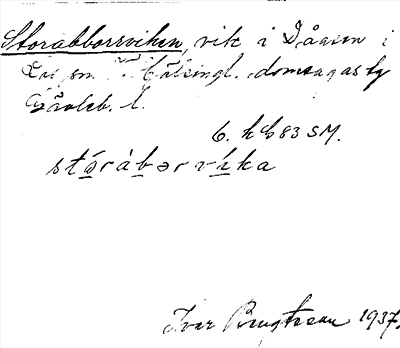 Storabborrviken, vik i Dåasen i
sn. Hälsingl. domsagas tg
Gävleb. l.
6. h G 83 SM.
stórábǝrvíka
Ivar Bengtsson 1937.